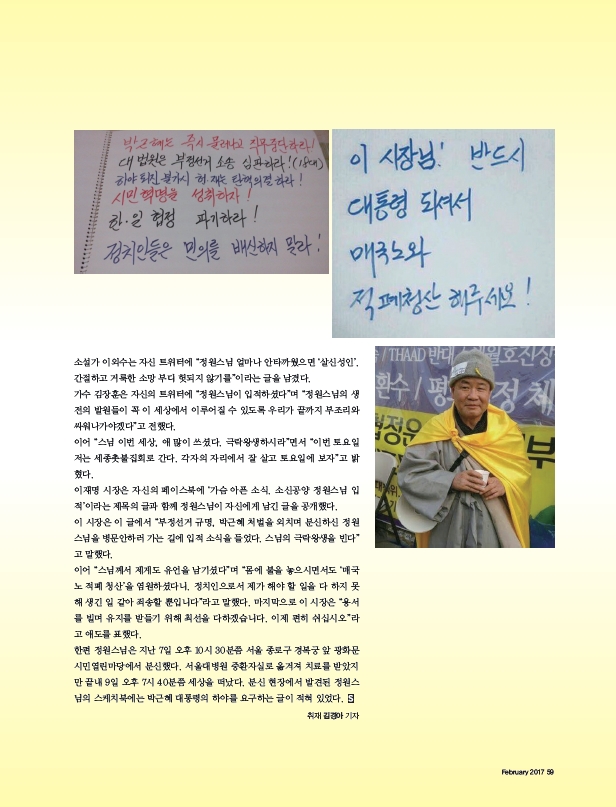 박근혜는 즉시 물러나고 직무중단하라!
대법원은 부정선거 소송 심판하라! (18대)
하야 퇴진 불가시 헌재는 탄핵의결하라!
시민혁명을 성취하자!
한·일협정 파기하라!
정치인들은 민의를 배신하지 말라!
이 시장님! 반드시
대통령 되셔서
매국노와
적폐청산 해주세요!
소설가 이외수는 자신 트위터에 “정원스님 얼마나 안타까웠으면 ‘살신성인’.
간절하고 거룩한 소망 부디 헛되지 않기를”이라는 글을 남겼다.
가수 김장훈은 자신의 트위터에 “정원스님이 입적하셨다”며 “정원스님의 생
전의 발원들이 꼭 이 세상에서 이루어질 수 있도록 우리가 끝까지 부조리와
싸워나가야겠다”고 전했다.
이어 “스님 이번 세상, 애 많이 쓰셨다. 극락왕생하시라”면서 “이번 토요일
저는 세종촛불집회로 간다. 각자의 자리에서 잘 살고 토요일에 보자”고 밝
혔다.
이재명 시장은 자신의 페이스북에 ‘가슴 아픈 소식, 소신공양 정원스님 입
적’이라는 제목의 글과 함께 정원스님이 자신에게 남긴 글을 공개했다.
이 시장은 이 글에서 “부정선거 규명, 박근혜 처벌을 외치며 분신하신 정원
스님을 병문안하러 가는 길에 입적 소식을 들었다. 스님의 극락왕생을 빈다”
고 말했다.
이어 “스님께서 제게도 유언을 남기셨다”며 “몸에 불을 놓으시면서도 ‘매국
노 적폐 청산’을 염원하셨다니, 정치인으로서 제가 해야 할 일을 다 하지 못
해 생긴 일 같아 죄송할 뿐입니다”라고 말했다. 마지막으로 이 시장은 “용서
를 빌며 유지를 받들기 위해 최선을 다하겠습니다. 이제 편히 쉬십시오”라
고 애도를 표했다.
한편 정원스님은 지난 7일 오후 10시 30분쯤 서울 종로구 경복궁 앞 광화문
시민열린마당에서 분신했다. 서울대병원 중환자실로 옮겨져 치료를 받았지
만 끝내 9일 오후 7시 40분쯤 세상을 떠났다. 분신 현장에서 발견된 정원스
님의 스케치북에는 박근혜 대통령의 하야를 요구하는 글이 적혀 있었다. S
취재 김경아 기자
THAAD 반대
환수 / 평
정체
협정
부
February 2017 59